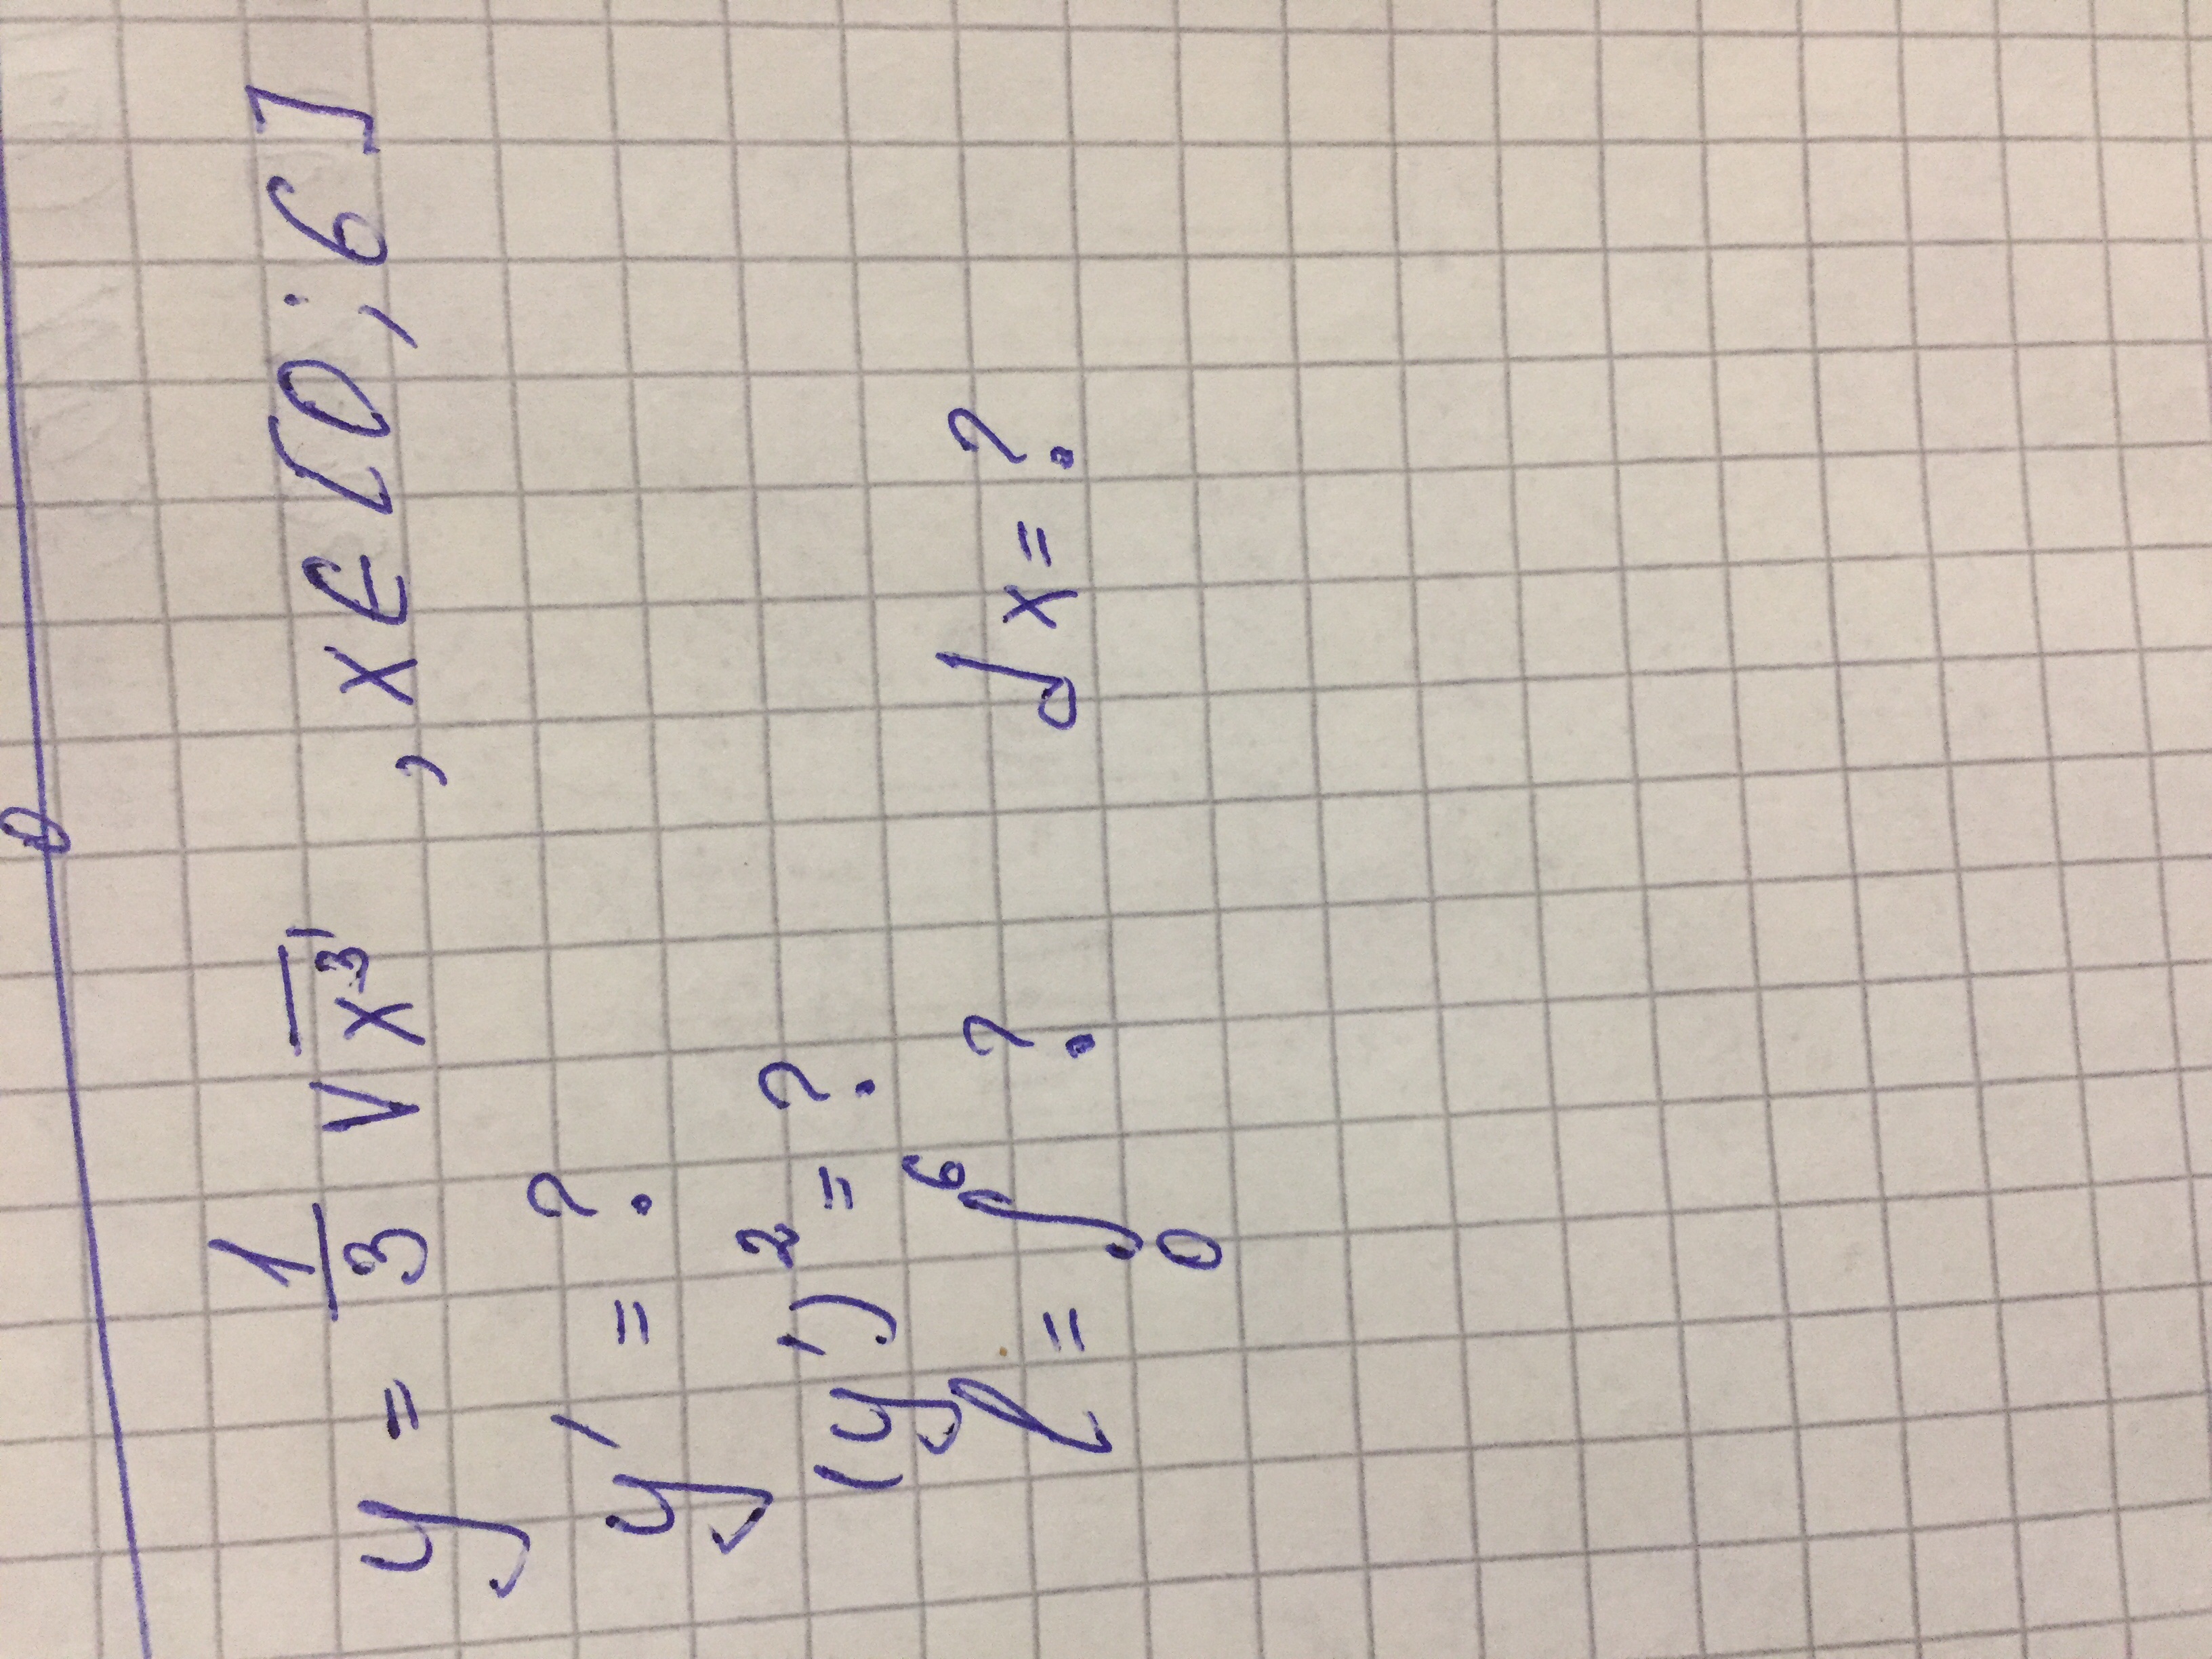 y = 1/3 √x³, x ∈ [0; 6]
y' = ?
(y')² = ?
l = ∫₀⁶ ? dx = ?